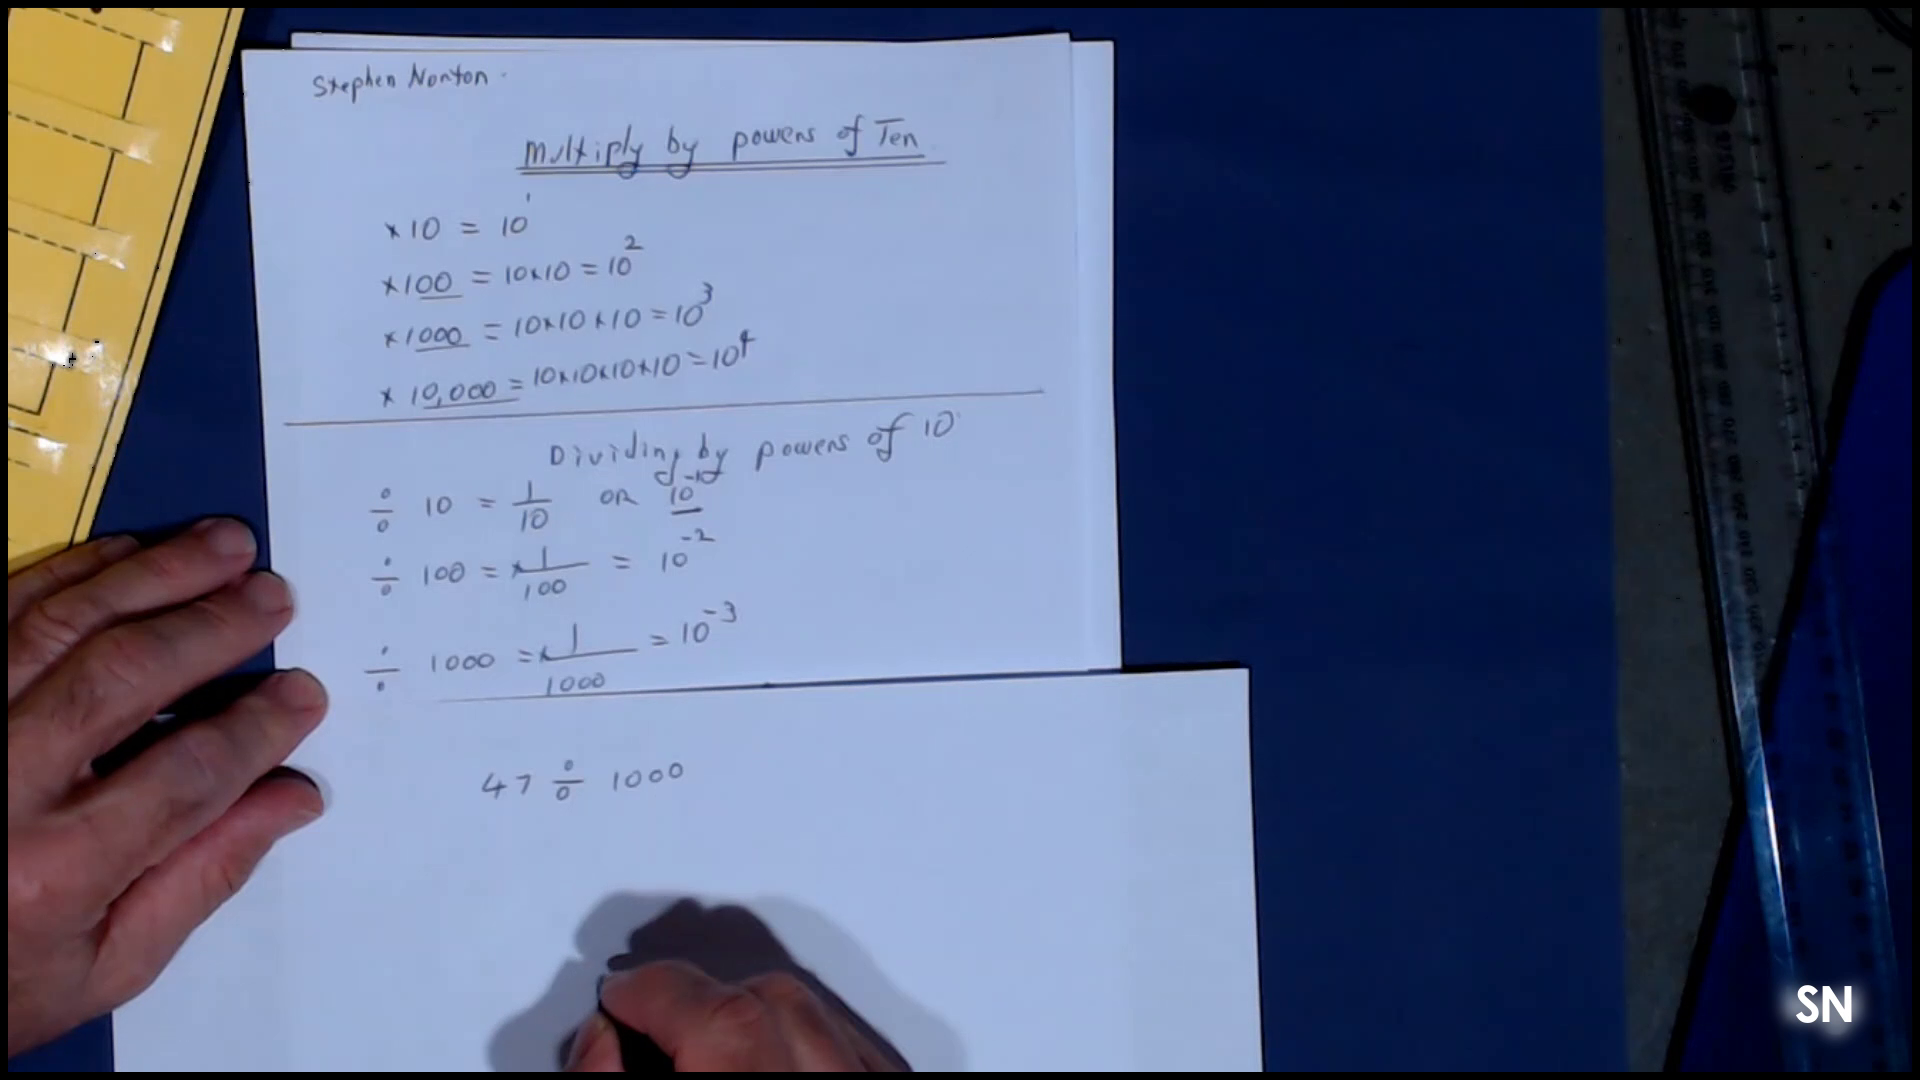 Stephen Norton.
Multiply by powers of Ten
×10 = 10¹
×100 = 10×10 = 10²
×1000 = 10×10×10 = 10³
× 10,000 = 10×10×10×10 = 10⁴
Dividing by powers of 10
÷ 10 = 1/10 OR 10⁻¹
÷ 100 = ×1/100 = 10⁻²
÷ 1000 = ×1/1000 = 10⁻³
47 ÷ 1000
SN